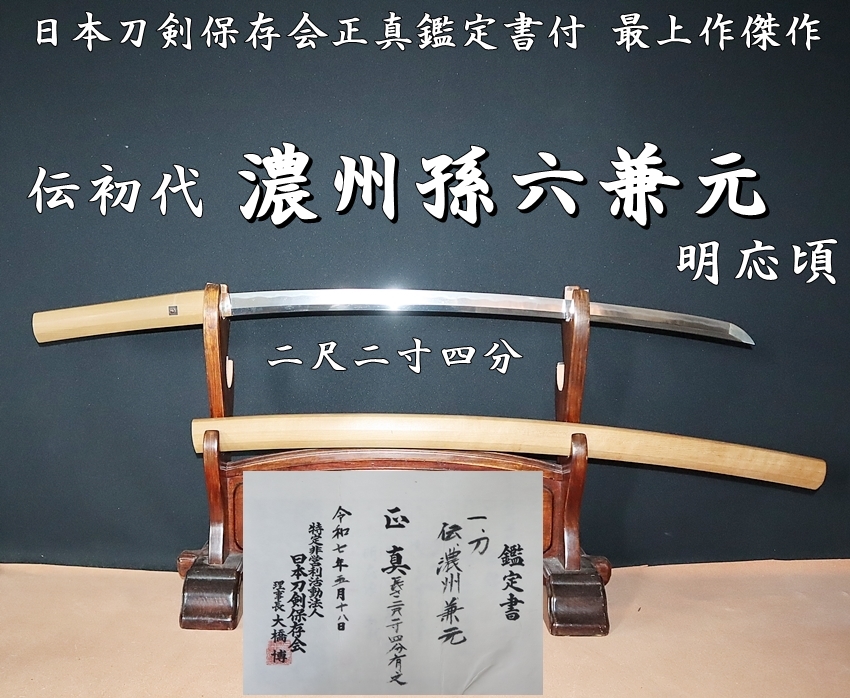 日本刀剣保存会正真鑑定書付 最上作傑作
伝初代 濃州孫六兼元
明応頃
二尺二寸四分
鑑定書
一、刀
伝、濃州兼元
正真 長さ二尺二寸四分有之
令和七年五月十八日
特定非営利活動法人
日本刀剣保存会
理事長 大橋 博